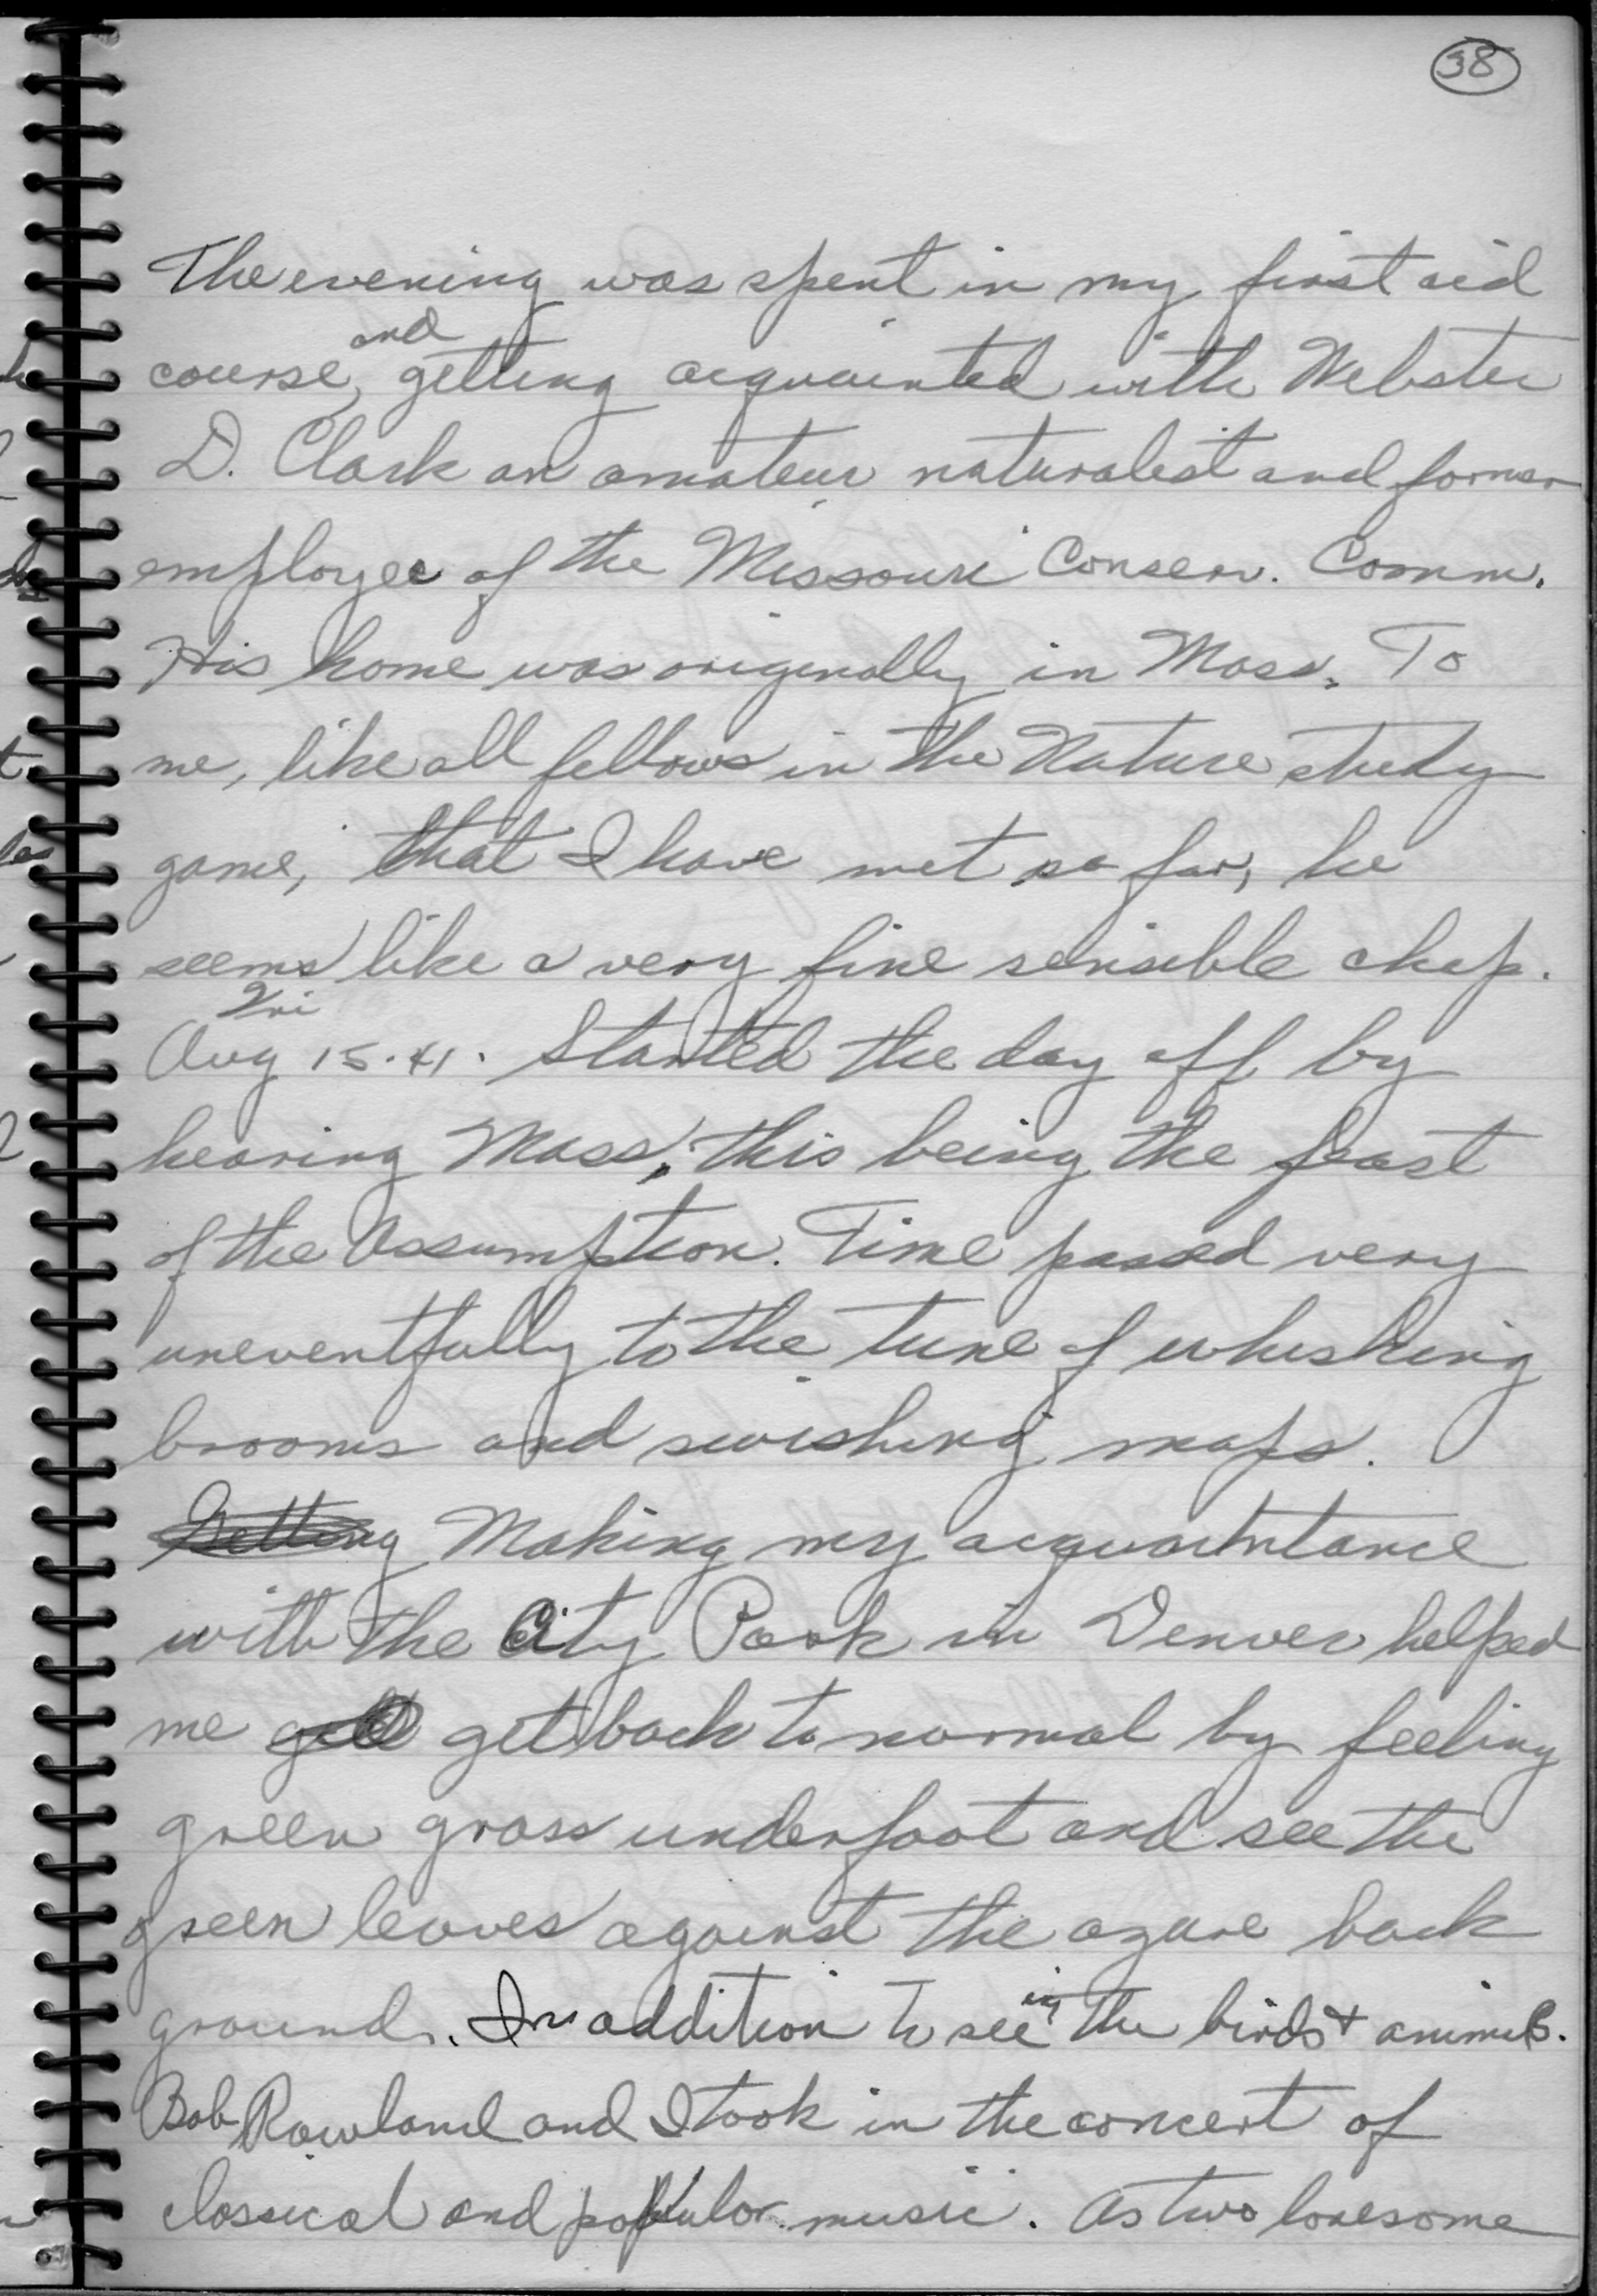 38
The evening was spent in my first aid
and
course, getting acquainted with Webster
D. Clark an amateur naturalist and former
employee of the Missouri Conserv. Comm.
His home was originally in Mass. To
me, like all fellows in the Nature study
game, that I have met so far, he
seems like a very fine sensible chap.
Fri
Aug 15·41. Started the day off by
hearing Mass; this being the feast
of the Assumption. Time passed very
uneventfully to the tune of whishing
brooms and swishing mops.
Getting Making my acquaintance
with the City Park in Denver helped
me get back to normal by feeling
green grass underfoot and see the
green leaves against the azure back
ground. In addition to seeing the birds & animls.
Bob Rowland and I took in the concert of
classical and popular music. As two lonesome